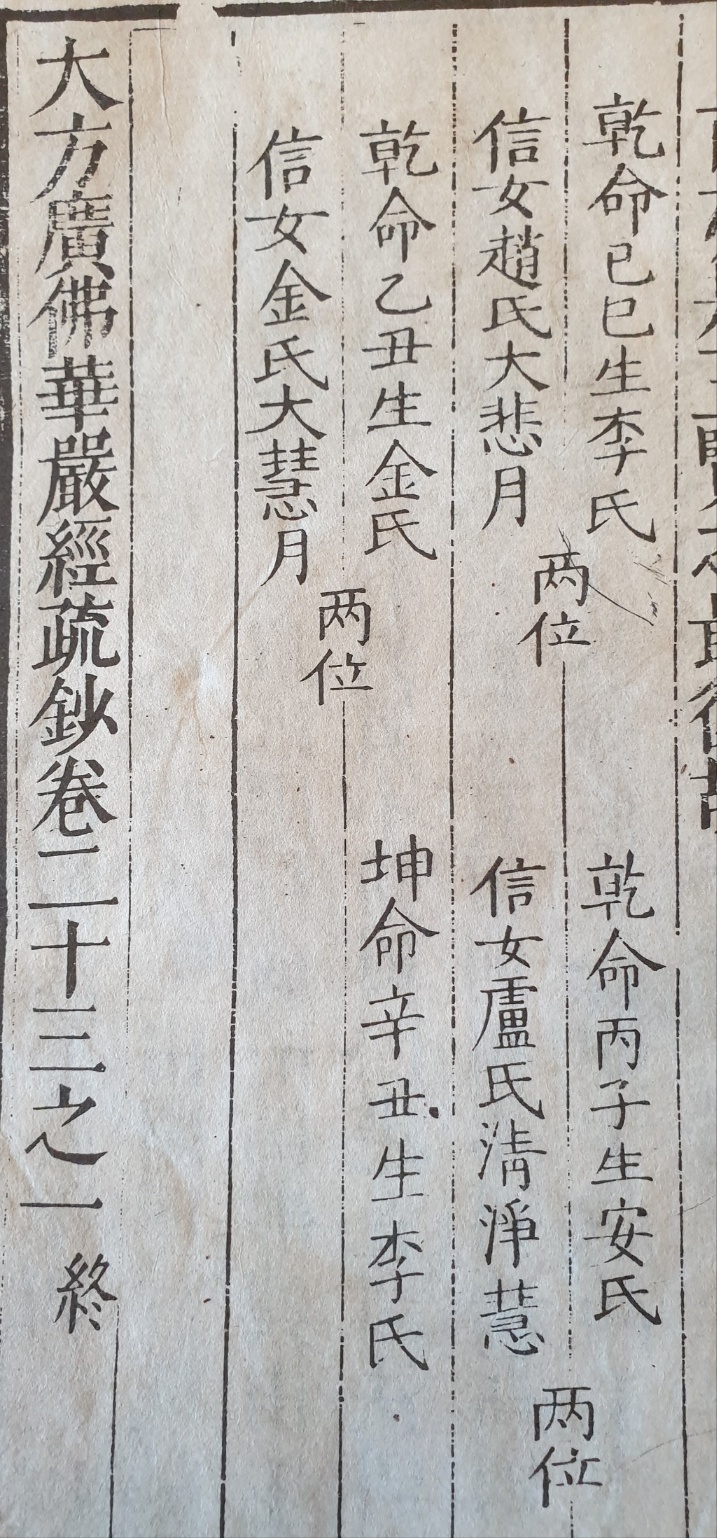 乾命己巳生李氏
信女趙氏大悲月
两位
乾命丙子生安氏
信女盧氏淸淨慧
两位
乾命乙丑生金氏
信女金氏大慧月
两位
坤命辛丑生李氏
大方廣佛華嚴經疏鈔卷二十三之一 終